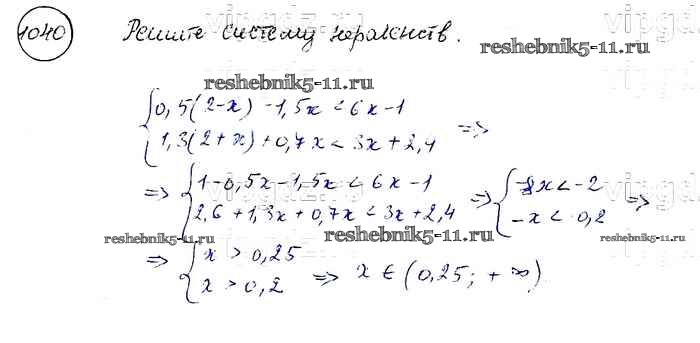 1040 Решите систему неравенств.
reshebnik5-11.ru
reshebnik5-11.ru
0,5(2-x) -1,5x < 6x-1
1,3(2+x)+0,7x < 3x+2,4 =>
=> 1-0,5x-1,5x < 6x-1 => -8x < -2
2,6+1,3x+0,7x < 3x+2,4 -x < -0,2 =>
reshebnik5-11.ru reshebnik5-11.ru reshebnik5-11.ru
=> x > 0,25
x > 0,2 => x ∈ (0,25; +∞)